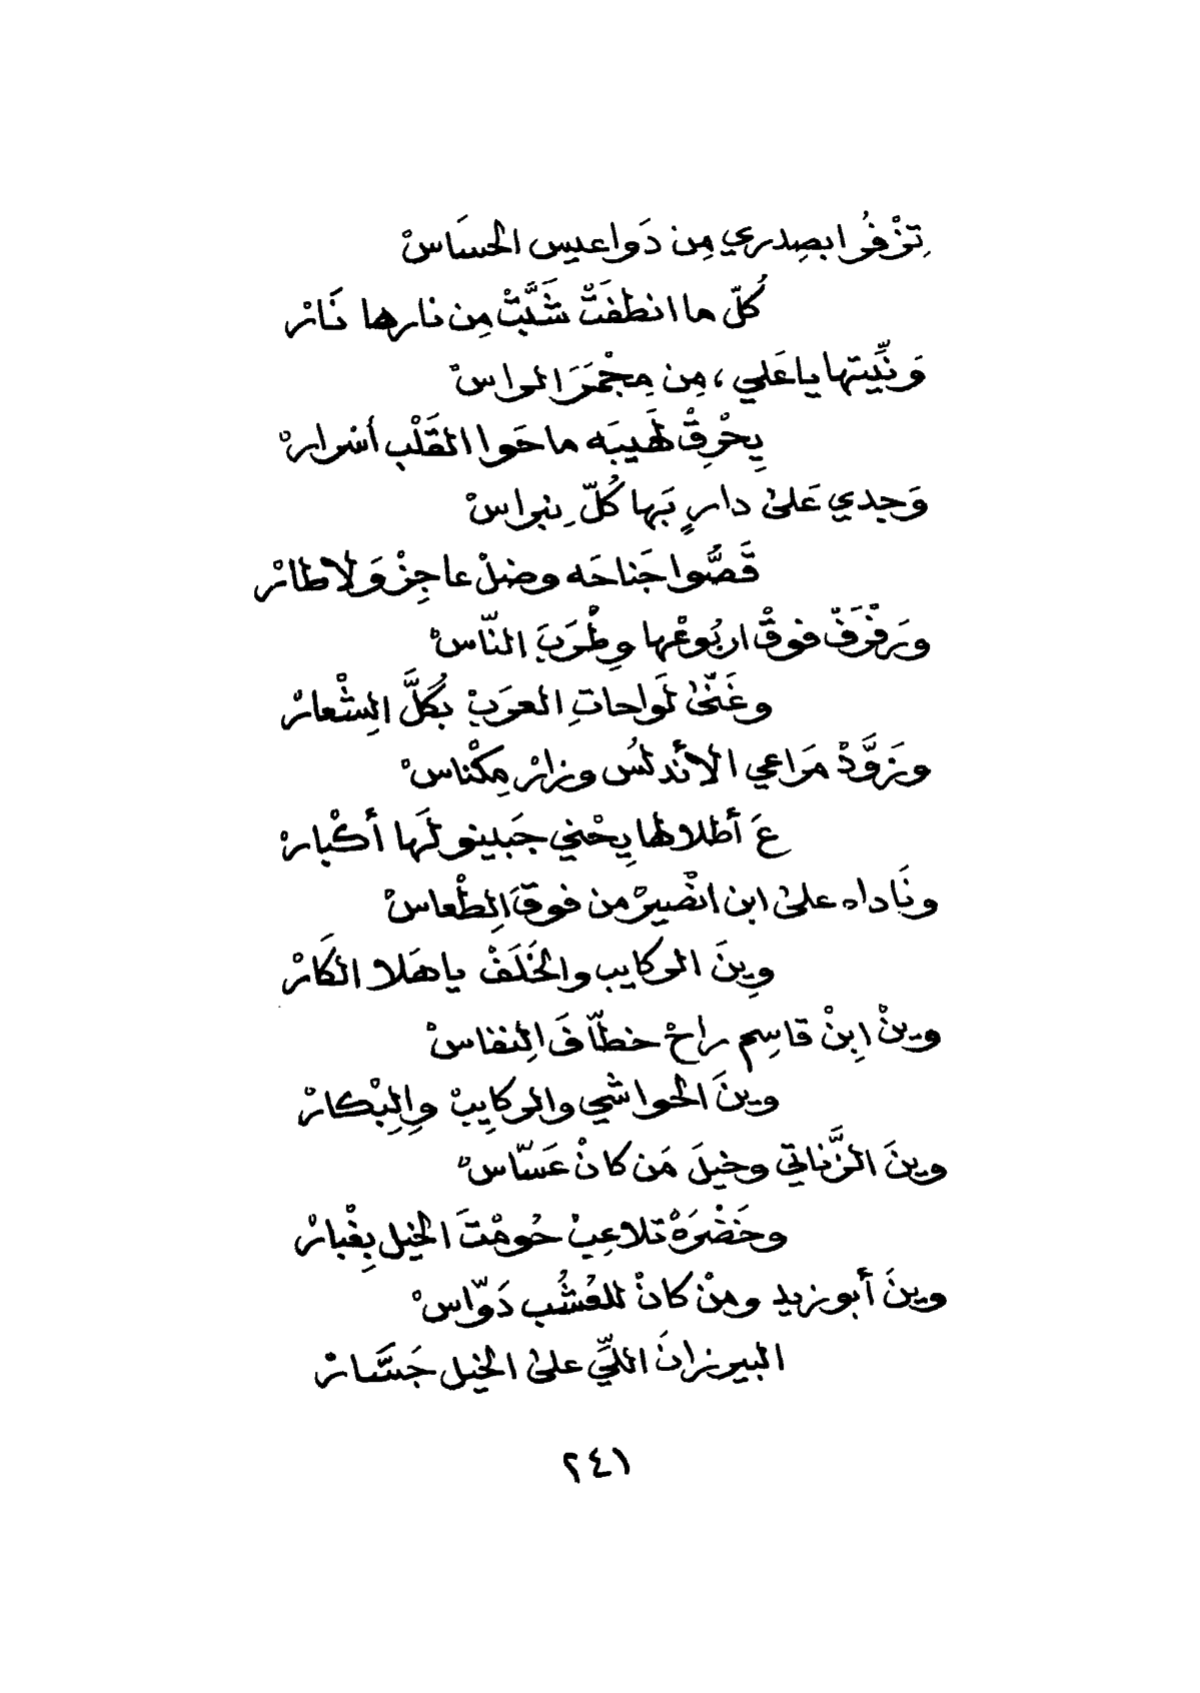 تِزْفُر ابصِدري مِن دَواعيس الحسَاسْ
كُلّ ما انطفَتْ شَبَّتْ مِن نارها نَارْ
وَنِّيتها يا عَلي ، مِن مِجْمَرَ الراسْ
يِحْرِقْ لَهيبَه ما حَوا القَلْب أسْرارْ
وَجدي عَلىٰ دارٍ بَها كُلّ نِبراسْ
قَصُّوا جَناحَه وضلْ عاجِزْ وَلا طائرْ
ورَفْرَفْ فوقْ اربُوعْها وِطْرَبَ النّاسْ
وغَنّىٰ لَواحاتِ العرَبْ بكُلَّ الِشْعارْ
وزَوَّدْ مَراعي الأندلسُ وزارْ مِكْناسْ
عَ أطلالها يِحْني جَبينو لَها أكْبارْ
ونَاداه علىٰ ابن انصَيرْ من فوقَ الِطْعاسْ
وِينَ الركايب والخَلَفْ يا هَلا الكَارْ
وينْ اِبنْ قاسِم راحْ خطّافَ الِنفاسْ
وينَ الحواشي والركايِبْ والِبْكارْ
وينَ الزَّناتي وخيلَ مَن كانْ عَسّاسْ
وخَضْرَهْ تلاعِبْ حُومْتَ الخيل بِغْبارْ
وينَ أبو زيد ومِنْ كانْ للعُشُب دَوّاسْ
البيرزانَ اللّي علىٰ الخيل جَسَّارْ
٢٤١